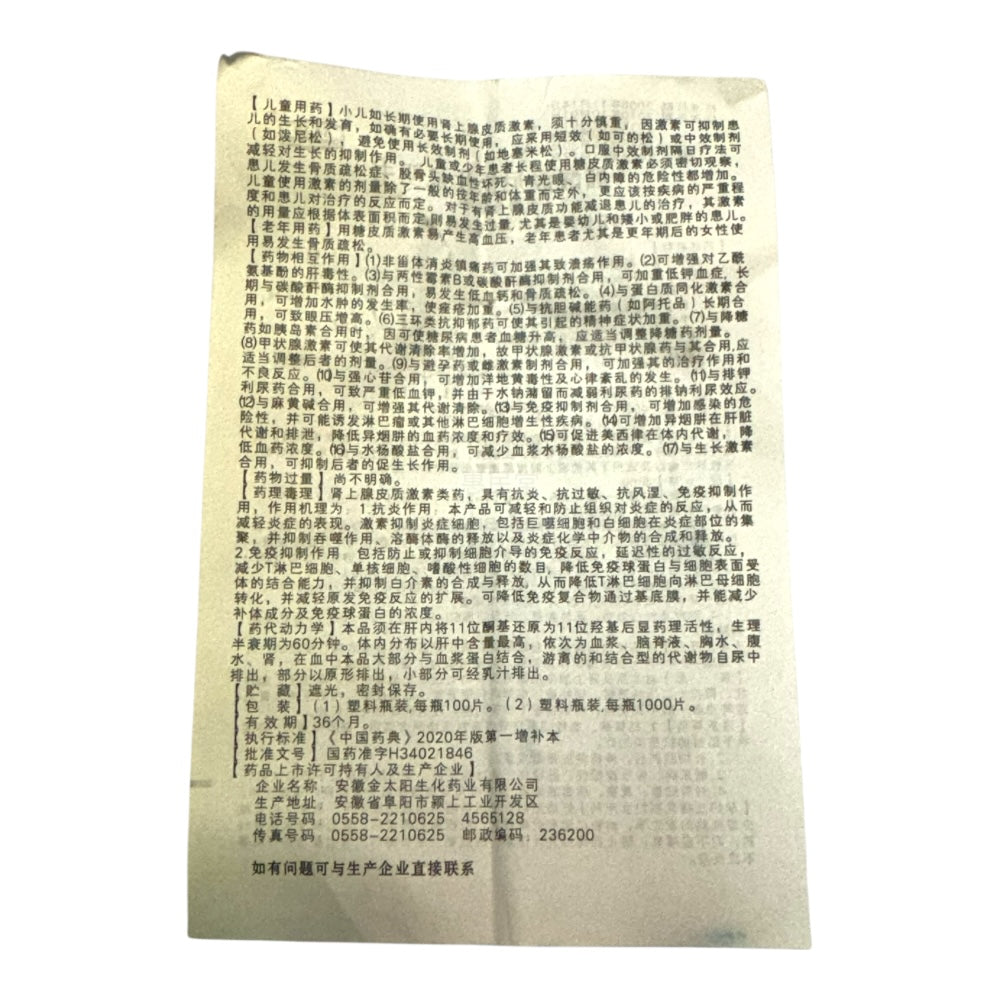 【儿童用药】小儿如长期使用肾上腺皮质激素，须十分慎重，因激素可抑制患
儿的生长和发育，如确有必要长期使用，应采用短效（如可的松）或中效制剂
（如泼尼松），避免使用长效制剂（如地塞米松）。口服中效制剂隔日疗法可
减轻对生长的抑制作用。儿童或少年患者长程使用糖皮质激素必须密切观察，
患儿发生骨质疏松症、股骨头缺血性坏死、青光眼、白内障的危险性都增加。
儿童使用激素的剂量除了一般的按年龄和体重而定外，更应该按疾病的严重程
度和患儿对治疗的反应而定。对于有肾上腺皮质功能减退患儿的治疗，其激素
的用量应根据体表面积而定,则易发生过量,尤其是婴幼儿和矮小或肥胖的患儿。
【老年用药】用糖皮质激素易产生高血压，老年患者尤其是更年期后的女性使
用易发生骨质疏松。
【药物相互作用】⑴非甾体消炎镇痛药可加强其致溃疡作用。⑵可增强对乙酰
氨基酚的肝毒性。⑶与两性霉素B或碳酸酐酶抑制剂合用，可加重低钾血症,长
期与碳酸酐酶抑制剂合用，易发生低血钙和骨质疏松。⑷与蛋白质同化激素合
用，可增加水肿的发生率，使痤疮加重。⑸与抗胆碱能药（如阿托品）长期合
用，可致眼压增高。⑹三环类抗抑郁药可使其引起的精神症状加重。⑺与降糖
药如胰岛素合用时，因可使糖尿病患者血糖升高，应适当调整降糖药剂量。
⑻甲状腺激素可使其代谢清除率增加，故甲状腺激素或抗甲状腺药与其合用,应
适当调整后者的剂量。⑼与避孕药或雌激素制剂合用，可加强其的治疗作用和
不良反应。⑽与强心苷合用，可增加洋地黄毒性及心律紊乱的发生。⑾与排钾
利尿药合用，可致严重低血钾，并由于水钠潴留而减弱利尿药的排钠利尿效应。
⑿与麻黄碱合用，可增强其代谢清除。⒀与免疫抑制剂合用，可增加感染的危
险性，并可能诱发淋巴瘤或其他淋巴细胞增生性疾病。⒁可增加异烟肼在肝脏
代谢和排泄，降低异烟肼的血药浓度和疗效。⒂可促进美西律在体内代谢，降
低血药浓度。⒃与水杨酸盐合用，可减少血浆水杨酸盐的浓度。⒄与生长激素
合用，可抑制后者的促生长作用。
【药物过量】尚不明确。
【药理毒理】肾上腺皮质激素类药，具有抗炎、抗过敏、抗风湿、免疫抑制作
用，作用机理为：1.抗炎作用：本产品可减轻和防止组织对炎症的反应，从而
减轻炎症的表现。激素抑制炎症细胞，包括巨噬细胞和白细胞在炎症部位的集
聚，并抑制吞噬作用、溶酶体酶的释放以及炎症化学中介物的合成和释放。
2.免疫抑制作用：包括防止或抑制细胞介导的免疫反应，延迟性的过敏反应，
减少T淋巴细胞、单核细胞、嗜酸性细胞的数目,降低免疫球蛋白与细胞表面受
体的结合能力，并抑制白介素的合成与释放,从而降低T淋巴细胞向淋巴母细胞
转化，并减轻原发免疫反应的扩展。可降低免疫复合物通过基底膜，并能减少
补体成分及免疫球蛋白的浓度。
【药代动力学】本品须在肝内将11位酮基还原为11位羟基后显药理活性，生理
半衰期为60分钟。体内分布以肝中含量最高，依次为血浆、脑脊液、胸水、腹
水、肾，在血中本品大部分与血浆蛋白结合，游离的和结合型的代谢物自尿中
排出，部分以原形排出，小部分可经乳汁排出。
【贮 藏】遮光，密封保存。
【包 装】（1）塑料瓶装,每瓶100片。（2）塑料瓶装,每瓶1000片。
【有效期】36个月。
【执行标准】《中国药典》2020年版第一增补本
【批准文号】国药准字H34021846
【药品上市许可持有人及生产企业】
企业名称：安徽金太阳生化药业有限公司
生产地址：安徽省阜阳市颍上工业开发区
电话号码：0558-2210625 4565128
传真号码：0558-2210625 邮政编码：236200
如有问题可与生产企业直接联系